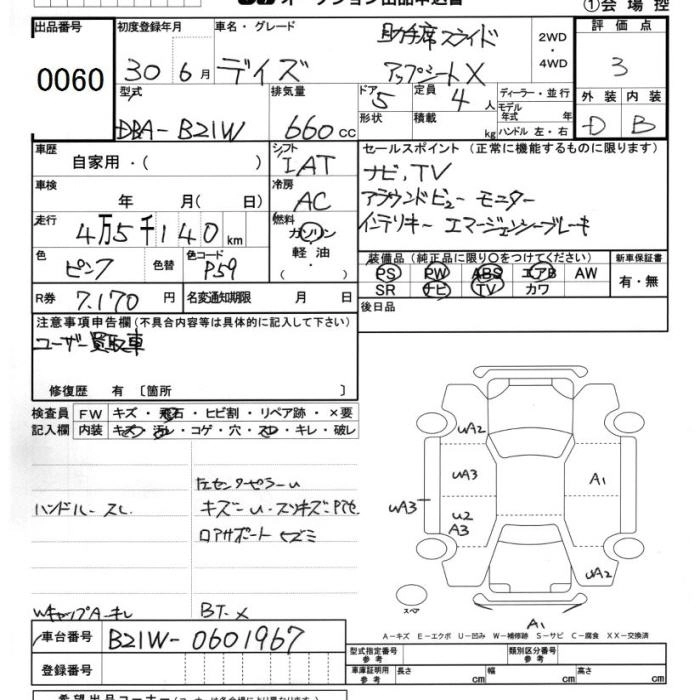 オークション出品申込書
①会場控
出品番号
0060
初度登録年月
30年6月
車名・グレード
デイズ
助手席スライド
アップシートX
2WD
・
4WD
評価点
3
外装 内装
D B
型式
DBA-B21W
排気量
660cc
ドア 5
形状
定員 4人
積載 kg
ディーラー・並行
モデル年式 年
ハンドル 左・右
車歴
自家用・( )
シフト
IAT
車検
年 月( 日)
冷房
AC
走行
4万5千140km
燃料
ガソリン
軽油
・( )
色
ピンク
色替
色コード
P59
R券
7.170円
名変通知期限 月 日
セールスポイント (正常に機能するものに限ります)
ナビ,TV
アラウンドビュー モニター
インテリキー エマージェンシーブレーキ
装備品(純正品に限り○をつけてください)
PS PW ABS エアB AW
SR ナビ TV カワ
新車保証書
有・無
後日品
注意事項申告欄(不具合内容等は具体的に記入して下さい)
ユーザー買取車
修復歴 有 〔箇所 〕
検査員記入欄
FW キズ・飛石・ヒビ割・リペア跡・×要
内装 キズ・汚レ・コゲ・穴・スレ・キレ・破レ
左センターピラーU
ハンドル-スレ
キズ-U-スリキズ
ロアサポート
WキャップA-キレ
BT-X
UA2
UA3
A1
UA3
U2
A3
UA2
スペア
A1
A-キズ E-エクボ U-凹み W-補修跡 S-サビ C-腐食 XX-交換済
車台番号
B21W-0601967
登録番号
型式指定番号
参考
類別区分番号
参考
車庫証明用
参考
長さ cm 幅 cm 高さ cm
希望出品コーナー